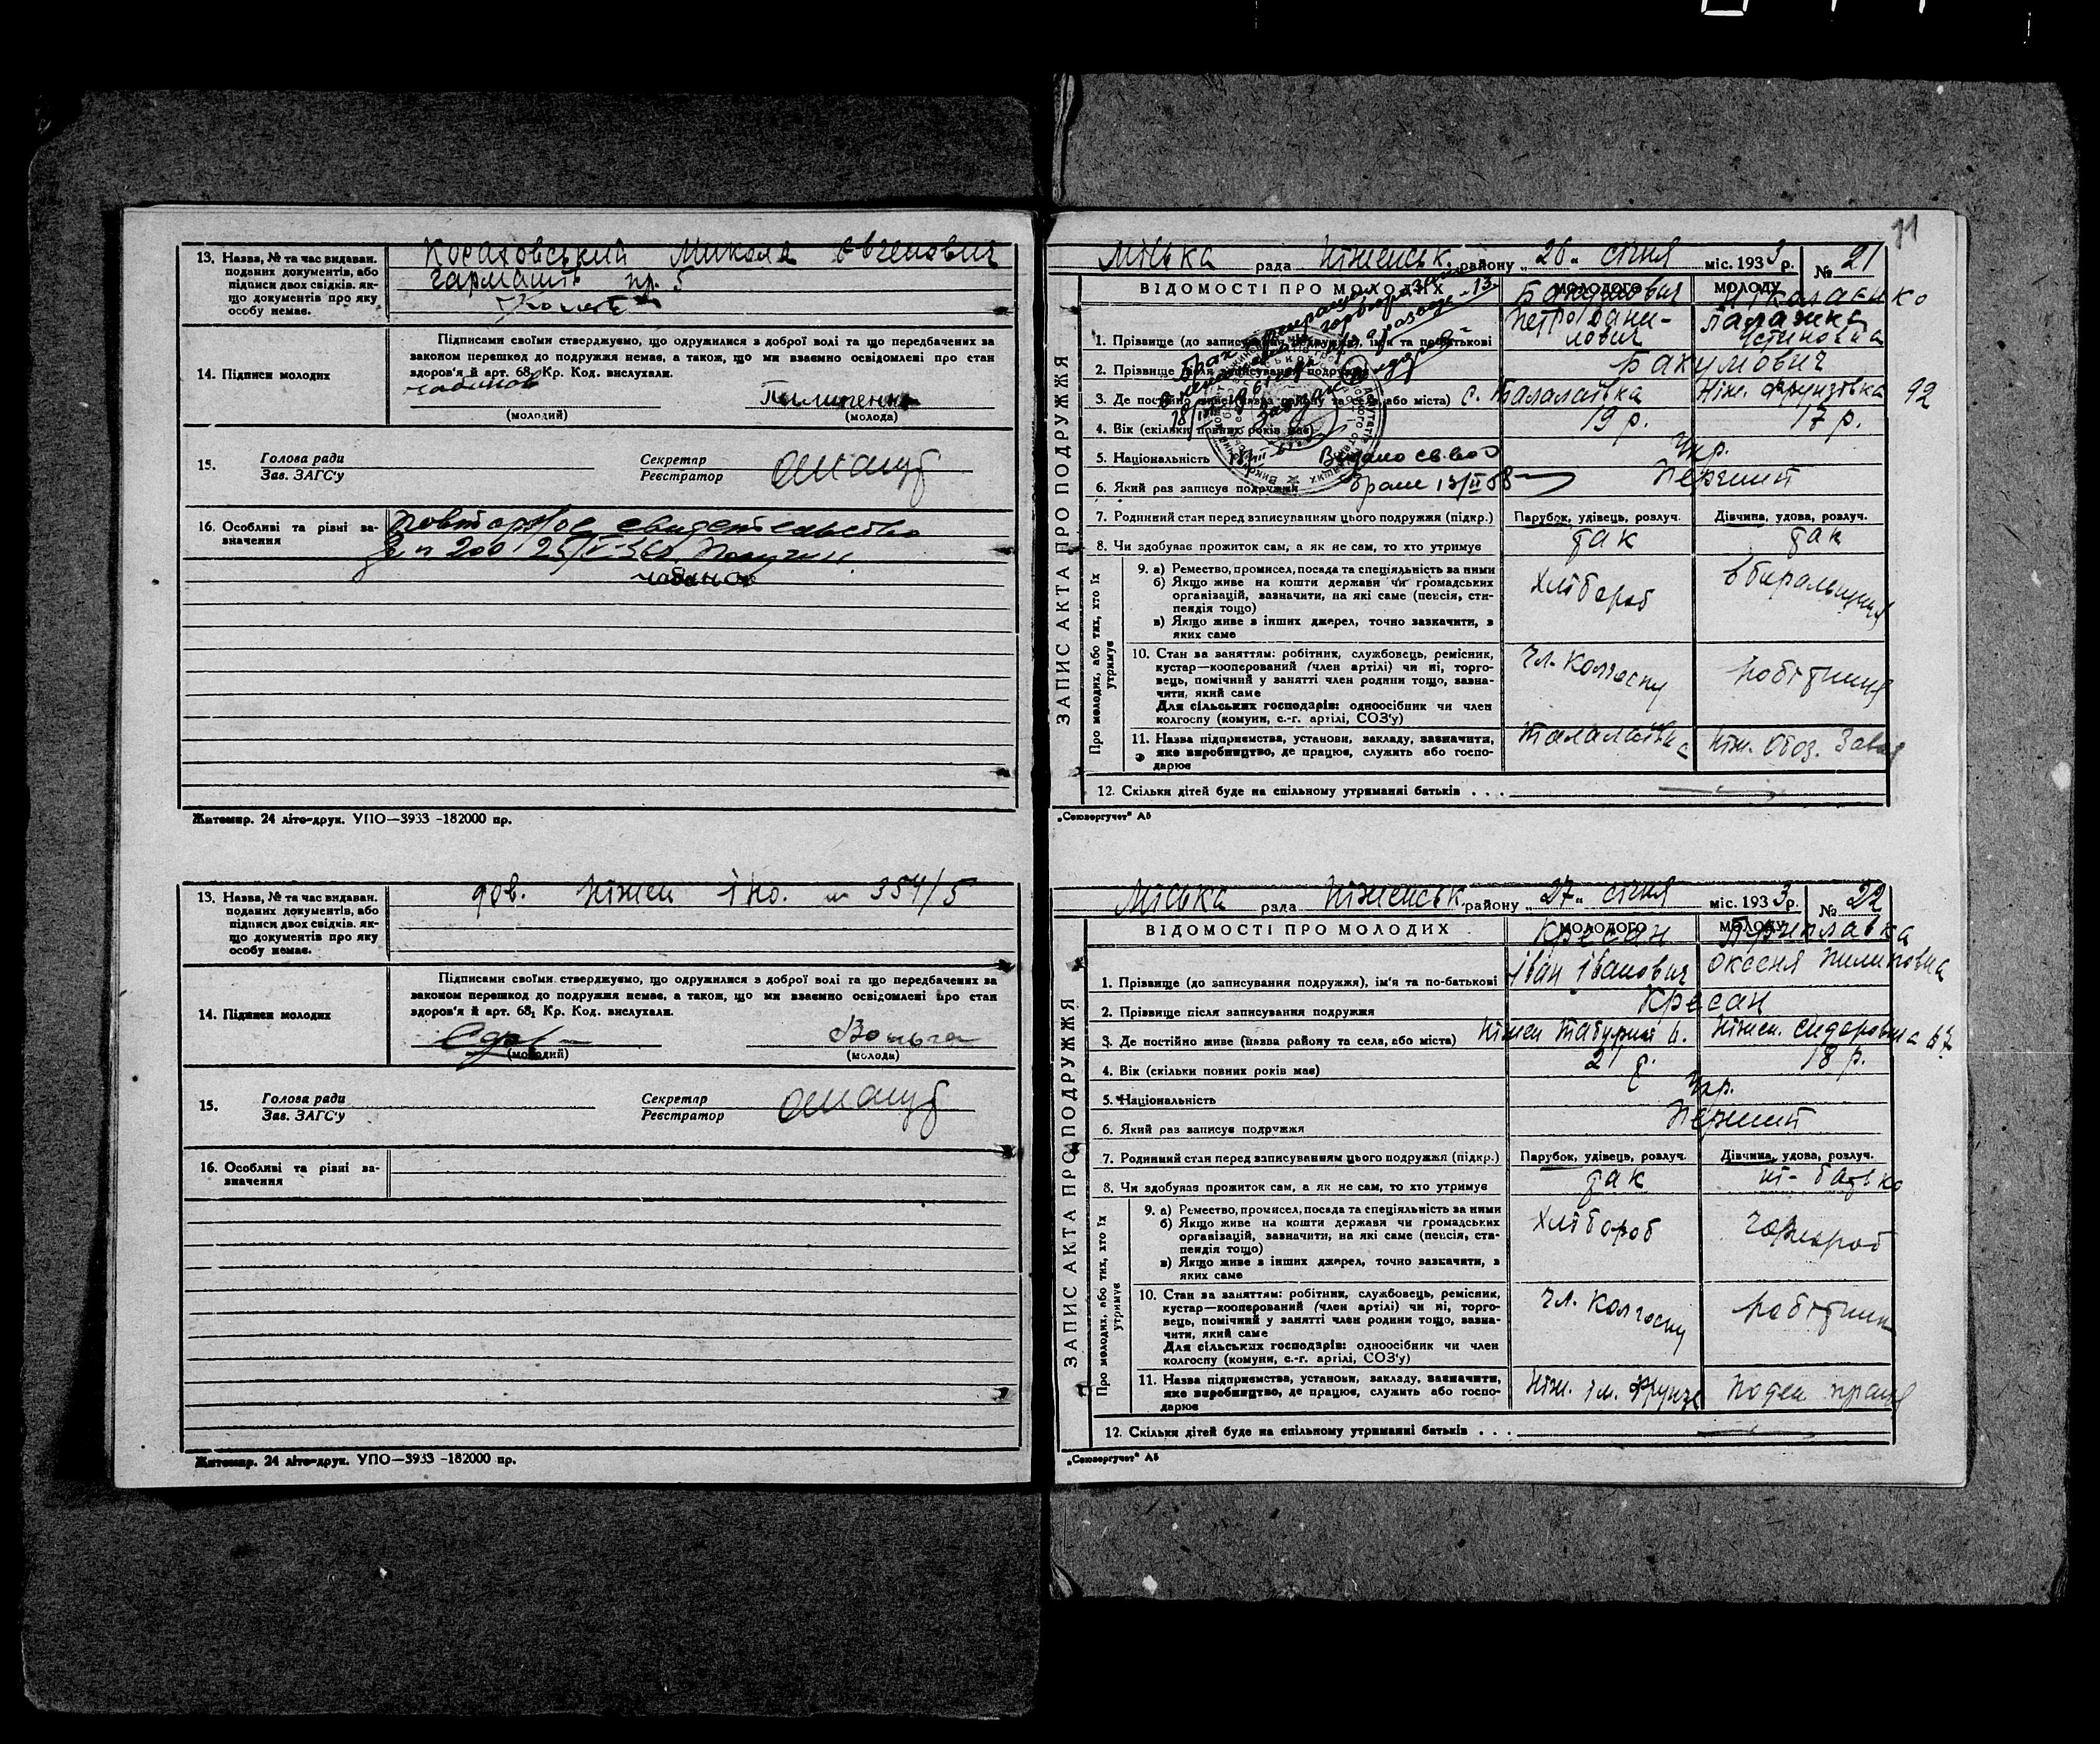 13. Назва, № та час видаван. поданих документів, або підписи двох свідків. якщо документів про яку особу немає.
Микола Євгенович
гармаш пр. 5
14. Підписи молодих
Підписами своїми стверджуємо, що одружилися з доброї волі та що передбачених за
законом перешкод до подружжя немає, а також, що ми взаємно освідомлені про стан
здоров'я й арт. 68₁ Кр. Код. вислухали.
Пилипенко
(молодий) (молода)
15. Голова ради
Зав. ЗАГС'у
Секретар
Реєстратор
16. Особливі та різні зазначення
Повторное свидетельство
Житомир. 24 літо-друк. УПО—3933 -182000 пр.
13. Назва, № та час видаван. поданих документів, або підписи двох свідків. якщо документів про яку особу немає.
дов. Ніжен № 354/5
14. Підписи молодих
Підписами своїми стверджуємо, що одружилися в доброї волі та що передбачених за
законом перешкод до подружжя немає, а також, що ми взаємно освідомлені про стан
здоров'я й арт. 68₁ Кр. Код. вислухали.
(молодий) (молода)
15. Голова ради
Зав. ЗАГС'у
Секретар
Реєстратор
16. Особливі та різні зазначення
Житомир. 24 літо-друк. УПО—3933 -182000 пр.
11
ЗАПИС АКТА ПРО ПОДРУЖЖЯ
Міська рада Ніженськ. району „26" січня міс. 1933 р. № 21
ВІДОМОСТІ ПРО МОЛОДИХ МОЛОДОГО МОЛОДУ
Бакумович Ніколаєнко
1. Прізвище (до записування подружжя), ім'я та по-батькові Петро Данилович Галажка Устиновна
2. Прізвище після записування подружжя Бакумович
3. Де постійно живе (назва району та села, або міста) с. Талалаївка Ніж. Фрунзівка 92
4. Вік (скільки повних років має) 19 р. 17 р.
5. Національність Укр.
Видано св. во о
6. Який раз записує подружжя Перший
браке 13/II 58
7. Родинний стан перед записуванням цього подружжя (підкр.) Парубок, удівець, розлуч. Дівчина, удова, розлуч.
8. Чи здобуває прожиток сам, а як не сам, то хто утримує так так
Про молодих, або тих, хто їх утримує
9. а) Ремество, промисел, посада та спеціяльність за ними
б) Якщо живе на кошти держави чи громадських
організацій, зазначити, на які саме (пенсія, стипендія тощо)
в) Якщо живе з інших джерел, точно зазначити, з
яких саме
хлібороб вбиральщиця
10. Стан за заняттям: робітник, службовець, ремісник,
кустар—кооперований (член артілі) чи ні, торговець, помічний у занятті член родини тощо, зазначити, який саме
Для сільських господарів: одноосібник чи член
колгоспу (комуни, с.-г. артілі, СОЗ'у)
чл. колгоспу робітниця
11. Назва підприємства, установи, закладу, зазначити,
яке виробництво, де працює, служить або господарює
Талалаївка Ніж. Обоз. Завод
12. Скільки дітей буде на спільному утриманні батьків . . .
„Союзоргучет" А5
ЗАПИС АКТА ПРО ПОДРУЖЖЯ
Міська рада Ніженськ. району „27" січня міс. 1933 р. № 22
ВІДОМОСТІ ПРО МОЛОДИХ МОЛОДОГО МОЛОДУ
Кресан Приплавка
1. Прізвище (до записування подружжя), ім'я та по-батькові Іван Іванович Оксеня Пилиповна
2. Прізвище після записування подружжя Кресан
3. Де постійно живе (назва району та села, або міста) Ніжен Ніжен.
4. Вік (скільки повних років має) 21 р. 18 р.
5. Національність Укр.
6. Який раз записує подружжя Перший
7. Родинний стан перед записуванням цього подружжя (підкр.) Парубок, удівець, розлуч. Дівчина, удова, розлуч.
8. Чи здобуває прожиток сам, а як не сам, то хто утримує так ні - батько
Про молодих, або тих, хто їх утримує
9. а) Ремество, промисел, посада та спеціяльність за ними
б) Якщо живе на кошти держави чи громадських
організацій, зазначити, на які саме (пенсія, стипендія тощо)
в) Якщо живе з інших джерел, точно зазначити, з
яких саме
хлібороб чорнороб
10. Стан за заняттям: робітник, службовець, ремісник,
кустар—кооперований (член артілі) чи ні, торговець, помічний у занятті член родини тощо, зазначити, який саме
Для сільських господарів: одноосібник чи член
колгоспу (комуни, с.-г. артілі, СОЗ'у)
чл. колгоспу робітник
11. Назва підприємства, установи, закладу, зазначити,
яке виробництво, де працює, служить або господарює
Ніж. ім. Фрунзе поден праця
12. Скільки дітей буде на спільному утриманні батьків . . .
„Союзоргучет" А5